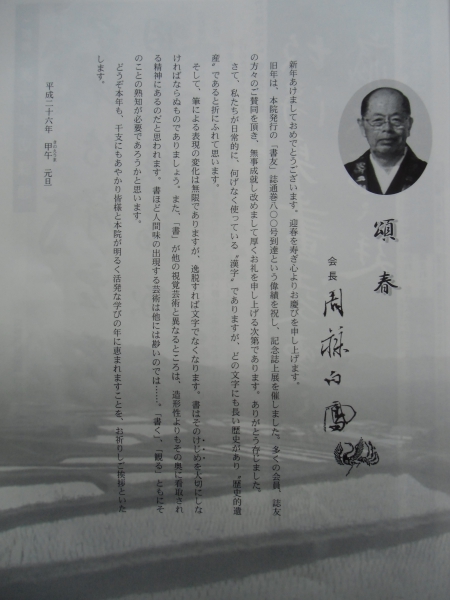 頌春
会長
新年あけましておめでとうございます。迎春を寿ぎ心よりお慶びを申し上げます。
旧年は、本院発行の「書友」誌通巻八〇〇号到達という偉績を祝し、記念誌上展を催しました。多くの会員、誌友
の方々のご賛同を頂き、無事成就し改めまして厚くお礼を申し上げる次第であります。ありがとう存じました。
さて、私たちが日常的に、何げなく使っている〝漢字〟でありますが、どの文字にも長い歴史があり〝歴史的遺
産〟であると折にふれて思います。
そして、筆による表現の変化は無限でありますが、逸脱すれば文字でなくなります。書はそのけじめを大切にしな
ければならぬものでありましょう。また、「書」が他の視覚芸術と異なるところは、造形性よりもその奥に看取され
る精神にあるのだと思われます。書ほど人間味の出現する芸術は他には尠いのでは……。「書く」、「観る」ともにそ
のことの熟知が必要であろうかと思います。
どうぞ本年も、干支にもあやかり皆様と本院が明るく活発な学びの年に恵まれますことを、お祈りしご挨拶といた
します。
平成二十六年 甲午 元旦